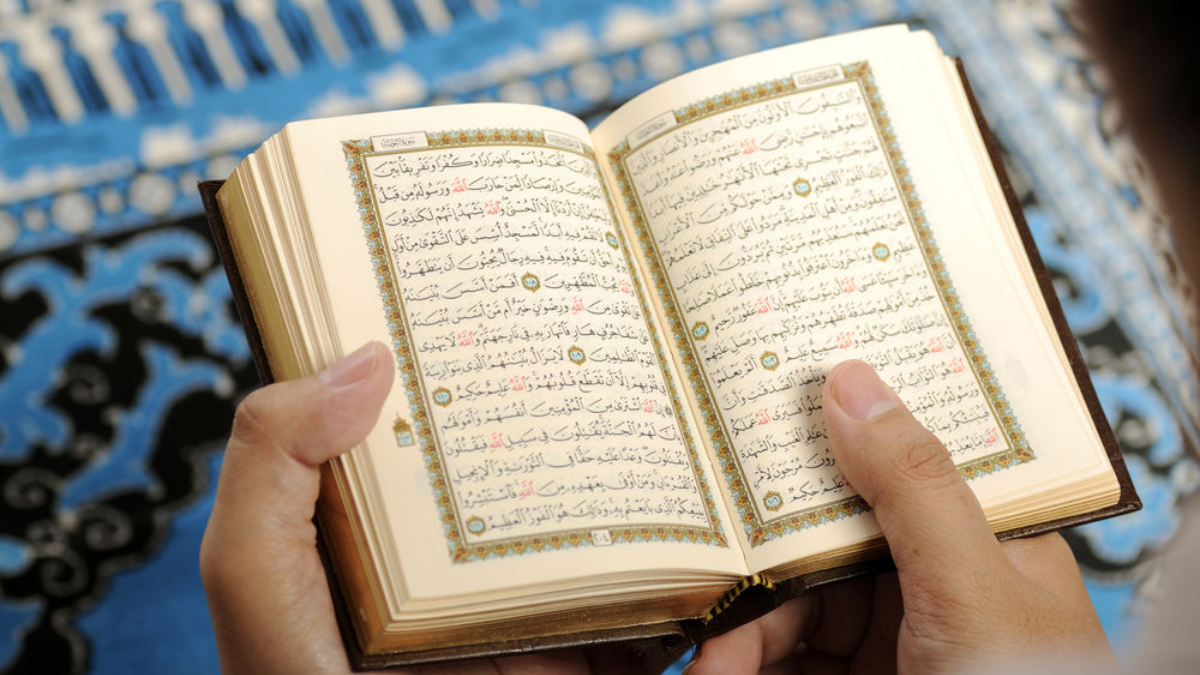 وَالسَّٰبِقُونَ الْأَوَّلُونَ مِنَ الْمُهَٰجِرِينَ وَالْأَنصَارِ وَالَّذِينَ
اتَّبَعُوهُم بِإِحْسَٰنٍ رَّضِيَ اللَّهُ عَنْهُمْ وَرَضُوا عَنْهُ وَأَعَدَّ
لَهُمْ جَنَّٰتٍ تَجْرِي تَحْتَهَا الْأَنْهَٰرُ خَٰلِدِينَ فِيهَا أَبَدًا
ذَٰلِكَ الْفَوْزُ الْعَظِيمُ ١٠٠ وَمِمَّنْ حَوْلَكُم مِّنَ الْأَعْرَابِ
مُنَٰفِقُونَ وَمِنْ أَهْلِ الْمَدِينَةِ مَرَدُوا عَلَى النِّفَاقِ لَا تَعْلَمُهُمْ
نَحْنُ نَعْلَمُهُمْ سَنُعَذِّبُهُم مَّرَّتَيْنِ ثُمَّ يُرَدُّونَ إِلَىٰ عَذَابٍ
عَظِيمٍ ١٠١ وَءَاخَرُونَ اعْتَرَفُوا بِذُنُوبِهِمْ خَلَطُوا عَمَلًا صَٰلِحًا
وَءَاخَرَ سَيِّئًا عَسَى اللَّهُ أَن يَتُوبَ عَلَيْهِمْ إِنَّ اللَّهَ غَفُورٌ رَّحِيمٌ ١٠٢
خُذْ مِنْ أَمْوَٰلِهِمْ صَدَقَةً تُطَهِّرُهُمْ وَتُزَكِّيهِم بِهَا وَصَلِّ عَلَيْهِمْ
إِنَّ صَلَوٰتَكَ سَكَنٌ لَّهُمْ وَاللَّهُ سَمِيعٌ عَلِيمٌ ١٠٣ أَلَمْ يَعْلَمُوا
أَنَّ اللَّهَ هُوَ يَقْبَلُ التَّوْبَةَ وَيَأْخُذُ الصَّدَقَٰتِ وَأَنَّ
اللَّهَ هُوَ التَّوَّابُ فَسَيَرَى اللَّهُ عَمَلَكُمْ
وَرَسُولُهُ عَٰلِمِ الْغَيْبِ وَالشَّهَٰدَةِ
فَيُنَبِّئُكُم بِمَا مُرْجَوْنَ لِأَمْرِ
اللَّهِ إِمَّا عَلِيمٌ حَكِيمٌ ١٠٦
سُورَةُ التَّوْبَةِ
وَالَّذِينَ اتَّخَذُوا مَسْجِدًا ضِرَارًا وَكُفْرًا وَتَفْرِيقًا بَيْنَ
الْمُؤْمِنِينَ وَإِرْصَادًا لِّمَنْ حَارَبَ اللَّهَ وَرَسُولَهُ مِن قَبْلُ
وَلَيَحْلِفُنَّ إِنْ أَرَدْنَا إِلَّا الْحُسْنَىٰ وَاللَّهُ يَشْهَدُ إِنَّهُمْ لَكَٰذِبُونَ
١٠٧ لَا تَقُمْ فِيهِ أَبَدًا لَّمَسْجِدٌ أُسِّسَ عَلَى التَّقْوَىٰ مِنْ أَوَّلِ
يَوْمٍ أَحَقُّ أَن تَقُومَ فِيهِ فِيهِ رِجَالٌ يُحِبُّونَ أَن يَتَطَهَّرُوا
وَاللَّهُ يُحِبُّ الْمُطَّهِّرِينَ ١٠٨ أَفَمَنْ أَسَّسَ بُنْيَٰنَهُ
عَلَىٰ تَقْوَىٰ مِنَ اللَّهِ وَرِضْوَٰنٍ خَيْرٌ أَم مَّنْ أَسَّسَ بُنْيَٰنَهُ
عَلَىٰ شَفَا جُرُفٍ هَارٍ فَانْهَارَ بِهِ فِي نَارِ جَهَنَّمَ وَاللَّهُ لَا يَهْدِي
الْقَوْمَ الظَّٰلِمِينَ ١٠٩ لَا يَزَالُ بُنْيَٰنُهُمُ الَّذِي بَنَوْا رِيبَةً
فِي قُلُوبِهِمْ إِلَّا أَن تَقَطَّعَ قُلُوبُهُمْ وَاللَّهُ عَلِيمٌ حَكِيمٌ ١١٠
إِنَّ اللَّهَ اشْتَرَىٰ مِنَ الْمُؤْمِنِينَ أَنفُسَهُمْ وَأَمْوَٰلَهُم
بِأَنَّ لَهُمُ الْجَنَّةَ يُقَٰتِلُونَ فِي سَبِيلِ اللَّهِ فَيَقْتُلُونَ
وَيُقْتَلُونَ وَعْدًا عَلَيْهِ حَقًّا فِي التَّوْرَىٰةِ وَالْإِنجِيلِ
وَالْقُرْءَانِ وَمَنْ أَوْفَىٰ بِعَهْدِهِ مِنَ اللَّهِ فَاسْتَبْشِرُوا
بِبَيْعِكُمُ الَّذِي بَايَعْتُم بِهِ وَذَٰلِكَ هُوَ الْفَوْزُ الْعَظِيمُ ١١١
٢٠٤